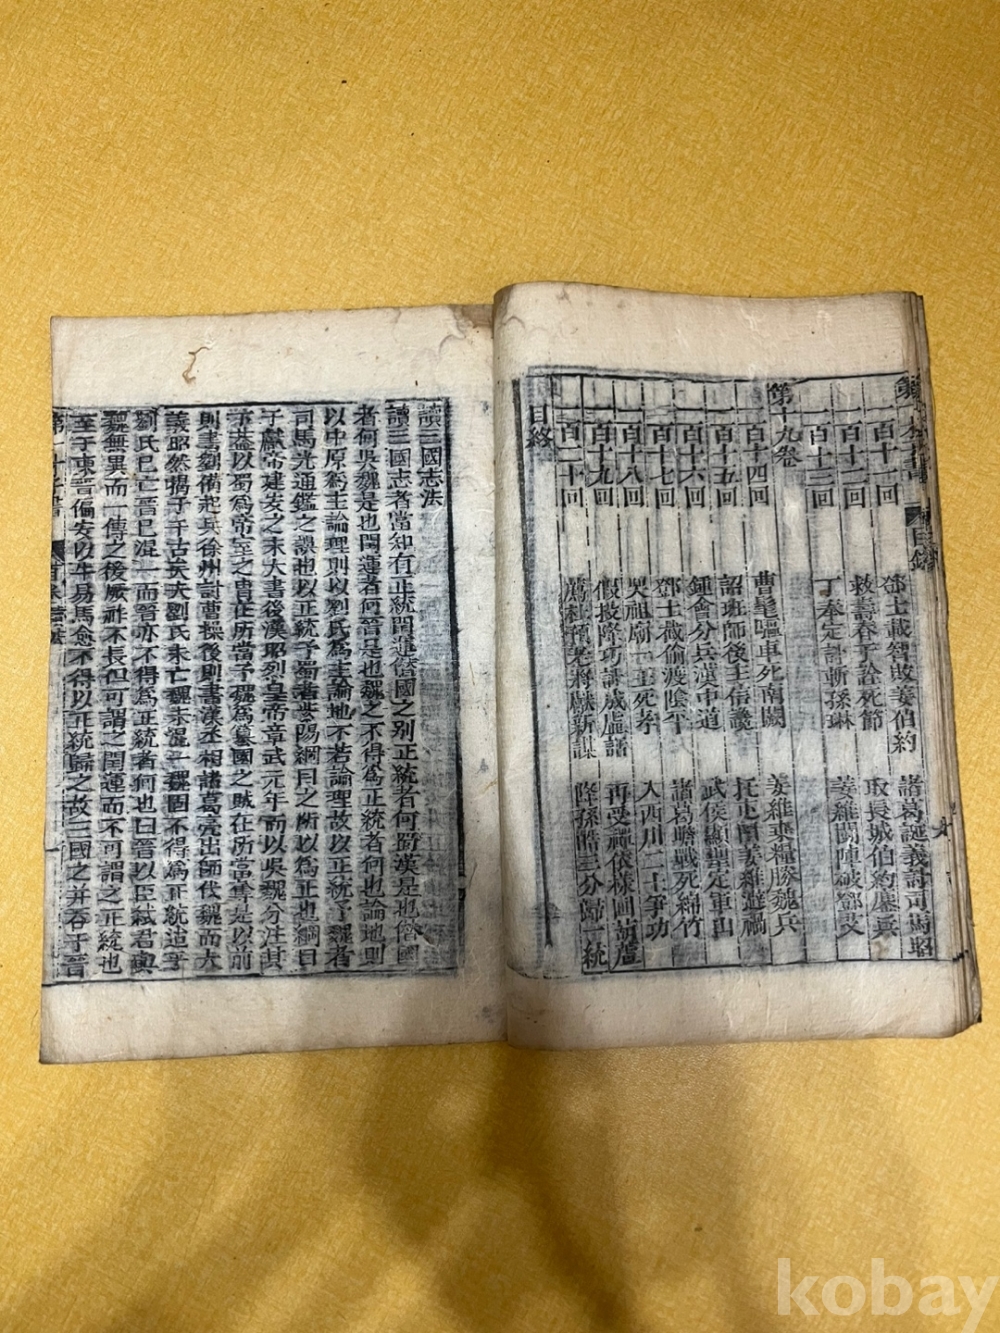 目錄
一百十一回 鄧士載智敗姜伯約 諸葛誕義討司馬昭
一百十二回 救壽春于詮死節 取長城伯約鏖兵
一百十三回 丁奉定計斬孫琳 姜維鬬陣破鄧艾
第十九卷
一百十四回 曹髦驅車死南闕 姜維棄糧勝魏兵
一百十五回 詔班師後主信讒 托屯田姜維避禍
一百十六回 鍾會分兵漢中道 武侯顯聖定軍山
一百十七回 鄧士載偷渡陰平 諸葛瞻戰死綿竹
一百十八回 哭祖廟一王死孝 入西川二士爭功
一百十九回 假投降巧計成虛話 再受禪依樣畫葫蘆
一百二十回 薦杜預老將獻新謀 降孫皓三分歸一統
目終
讀三國志法
讀三國志者當知有正統閏運僭國之别正統者何蜀漢是也僭國
者何吳魏是也閏運者何晉是也魏之不得爲正統者何也論地則
以中原爲主論理則以劉氏爲主論地不若論理故以正統予魏者
司馬光通鑑之誤也以正統予蜀者紫陽綱目之所以爲正也綱目
于獻帝建安之末大書後漢昭烈皇帝章武元年而以吳魏分注其
下葢以蜀爲帝室之胄在所當予魏爲簒國之賊在所當奪是以前
則書劉備起兵徐州討曹操後則書漢丞相諸葛亮出師伐魏而大
義昭然揭于千古矣夫劉氏未亡魏未混一魏固不得爲正統迨乎
劉氏已亡晉已混一而晉亦不得爲正統者何也曰晉以臣弑君與
魏無異而一傳之後厥祚不長但可謂之閏運而不可謂之正統也
至于東晉偏安以牛易馬愈不得以正統歸之故三國之并吞于晉
kobay